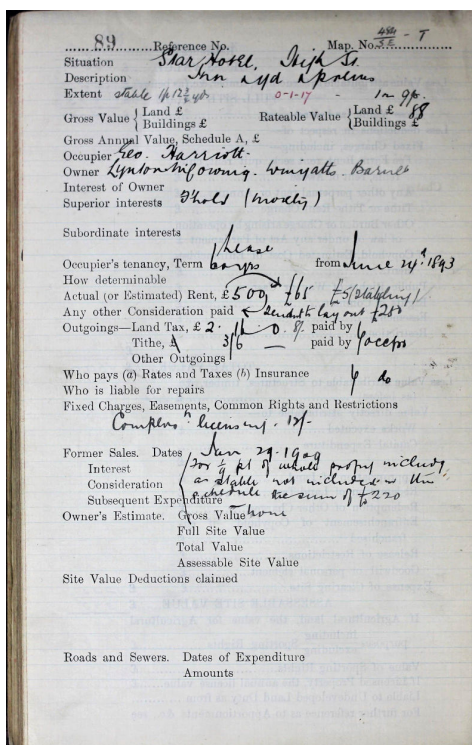 89 Reference No. Map. No. - T
Situation Star Hotel, High St.
Description Inn yd & prems
Extent stable 1p 12 yds 0-1-17 1r 9p.
Gross Value { Land £ Buildings £ Rateable Value { Land £ Buildings £ 88
Gross Annual Value, Schedule A, £
Occupier Geo. Harriott.
Owner
Interest of Owner
Superior interests F'hold (mostly)
Subordinate interests
Occupier's tenancy, Term Lease 60 yrs from June 24th 1893
How determinable
Actual (or Estimated) Rent, £500 & £65 £5 (stabling)
Any other Consideration paid lay out £200
Outgoings—Land Tax, £2. paid by
Tithe, £ 3/6 — paid by } occpr
Other Outgoings
Who pays (a) Rates and Taxes (b) Insurance } do
Who is liable for repairs
Fixed Charges, Easements, Common Rights and Restrictions
licensing.
Former Sales. Dates Jan 29. 1909
Interest For pt of whole propy includg
Consideration a stable not included in this
Subsequent Expenditure schedule the sum of £220
Owner's Estimate. Gross Value none
Full Site Value
Total Value
Assessable Site Value
Site Value Deductions claimed
Roads and Sewers. Dates of Expenditure
Amounts